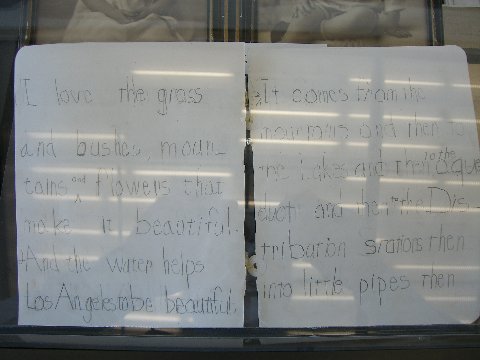 I love the grass
and bushes, moun-
tains and flowers that
make it beautiful.
And the water helps
Los Angeles to be beautiful.
It comes from the
and then to
the Lakes and then to the aque
duct and then to the Dis-
tribution Stations then
into little pipes then